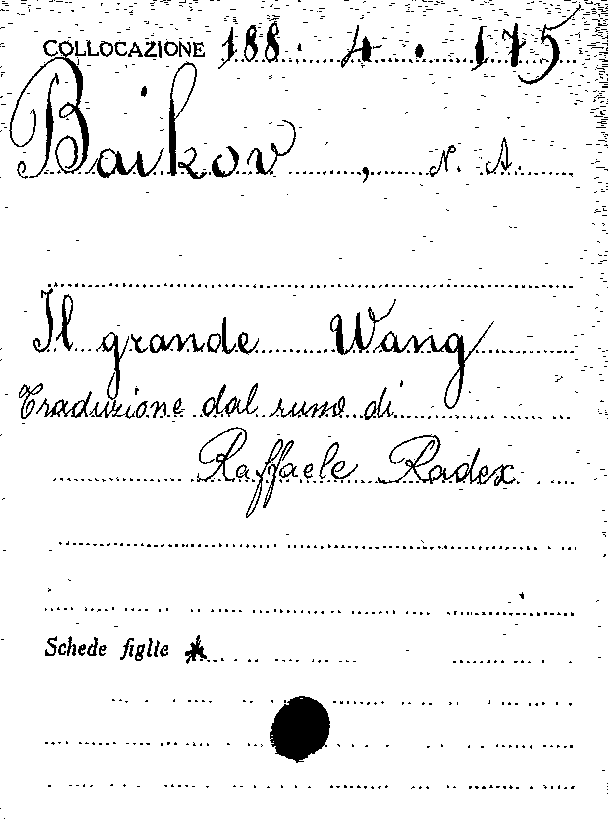 COLLOCAZIONE 188. 4. 175
Baikov, N. A.
Il grande Wang
Traduzione dal russo di
Raffaele Radex
Schede figlie *